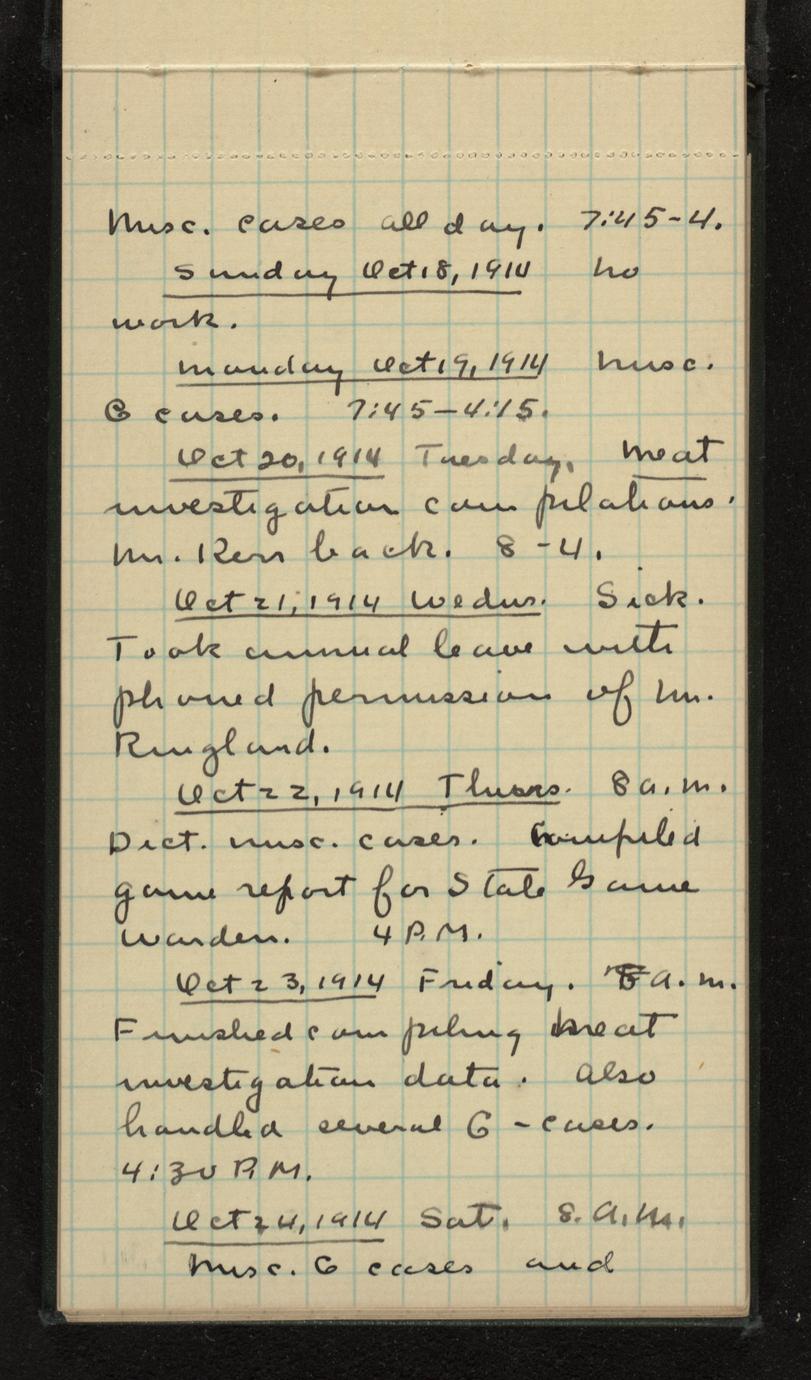 Misc. cases all day. 7:45-4.
Sunday Oct 18, 1914 No
work.
Monday Oct 19, 1914 Misc.
G cases. 7:45-4:15.
Oct 20, 1914 Tuesday, Meat
investigation compilations.
Mr. Kerr back. 8-4.
Oct 21, 1914 Wednes. Sick.
Took annual leave with
phoned permission of Mr.
Ringland.
Oct 22, 1914 Thurs. 8 a.m.
Dict. misc. cases. Compiled
game report for State Game
Warden. 4 P.M.
Oct 23, 1914 Friday. 8 a.m.
Finished compiling meat
investigation data. Also
handled several G-cases.
4:30 P.M.
Oct 24, 1914 Sat. 8. A.M.
Misc. G cases and